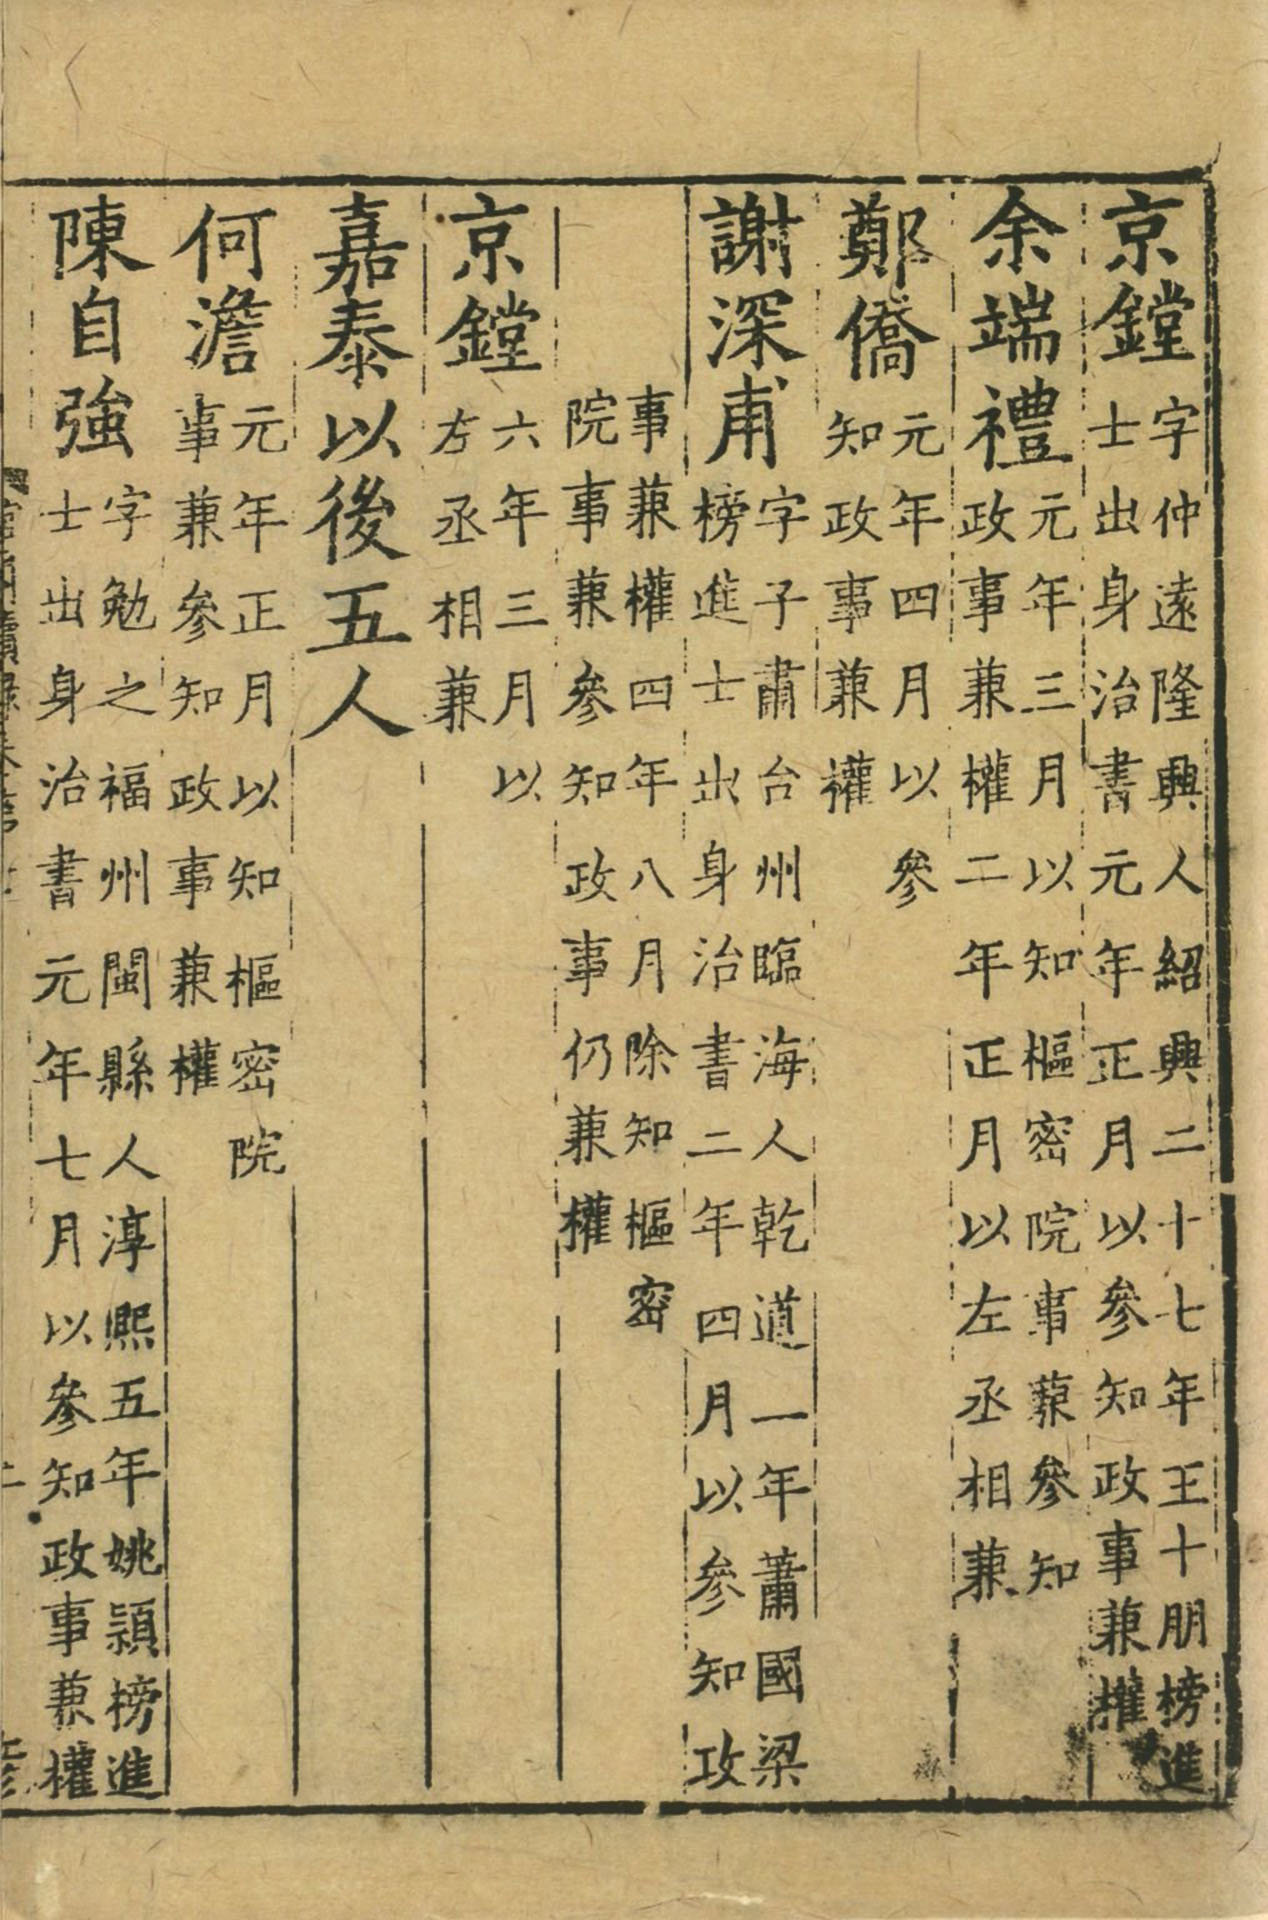 京鏜字仲遠隆興人紹興二十七年王十朋榜進
士出身治書元年正月以參知政事兼權
余端禮元年三月以知樞密院事兼參知
政事兼權二年正月以左丞相兼
鄭僑元年四月以參
知政事兼權
謝深甫字子肅台州臨海人乾道一年蕭國梁
榜進士出身治書二年四月以參知政
事兼權四年八月除知樞密
院事兼參知政事仍兼權
京鏜六年三月以
左丞相兼
嘉泰以後五人
何澹元年正月以知樞密院
事兼參知政事兼權
陳自強字勉之福州閩縣人淳熙五年姚穎榜進
士出身治書元年七月以參知政事兼權